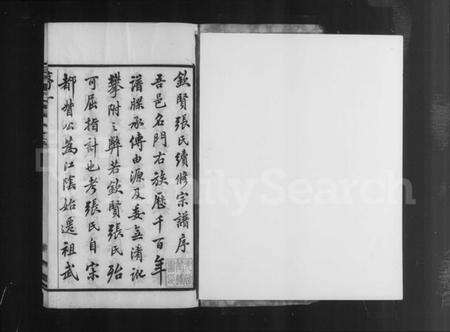 欽賢張氏續修宗譜序
吾邑名門右族歷千百年
譜牒承傳由源及委無淆訛
攀附之弊若欽賢張氏殆
可屈指計也考張氏自宋
都督公為江陰始遷祖武
FamilySearch